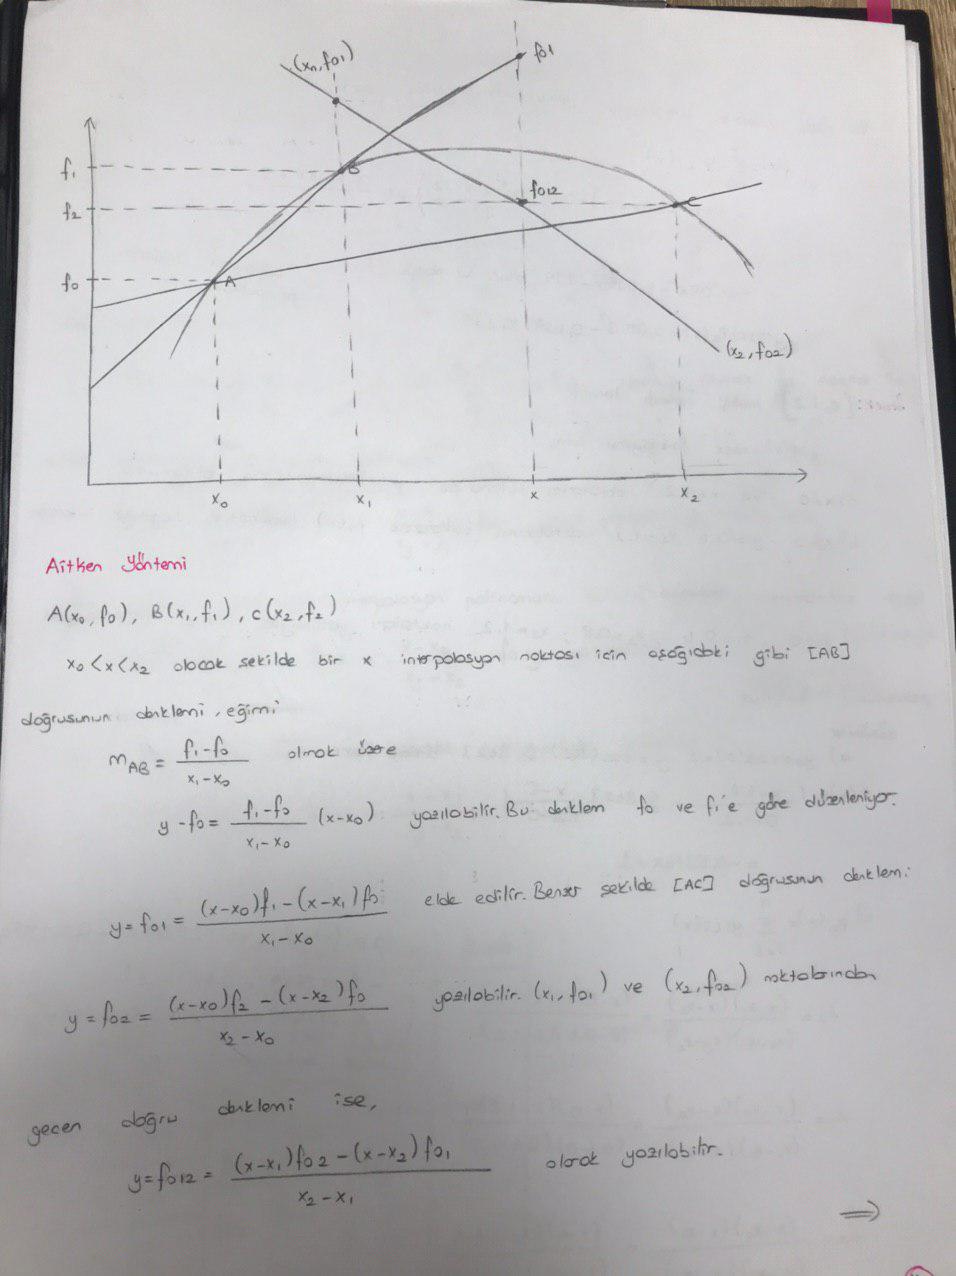 (xₙ, f₀₁)
f₀₁
f₁
B
f₂
f₀₁₂
C
f₀
A
(x₂, f₀₂)
x₀ x₁ x x₂
Aitken Yöntemi
A(x₀, f₀), B(x₁, f₁), C(x₂, f₂)
x₀ < x < x₂ olacak şekilde bir x interpolasyon noktası için aşağıdaki gibi [AB]
doğrusunun denklemi, eğimi
m_AB = (f₁ - f₀) / (x₁ - x₀) olmak üzere
y - f₀ = (f₁ - f₀) / (x₁ - x₀) (x - x₀) yazılabilir. Bu denklem f₀ ve f₁'e göre düzenleniyor.
y = f₀₁ = ((x - x₀)f₁ - (x - x₁)f₀) / (x₁ - x₀) elde edilir. Benzer şekilde [AC] doğrusunun denklemi
y = f₀₂ = ((x - x₀)f₂ - (x - x₂)f₀) / (x₂ - x₀) yazılabilir. (x₁, f₀₁) ve (x₂, f₀₂) noktalarından
geçen doğru denklemi ise,
y = f₀₁₂ = ((x - x₁)f₀₂ - (x - x₂)f₀₁) / (x₂ - x₁) olarak yazılabilir.
⇒